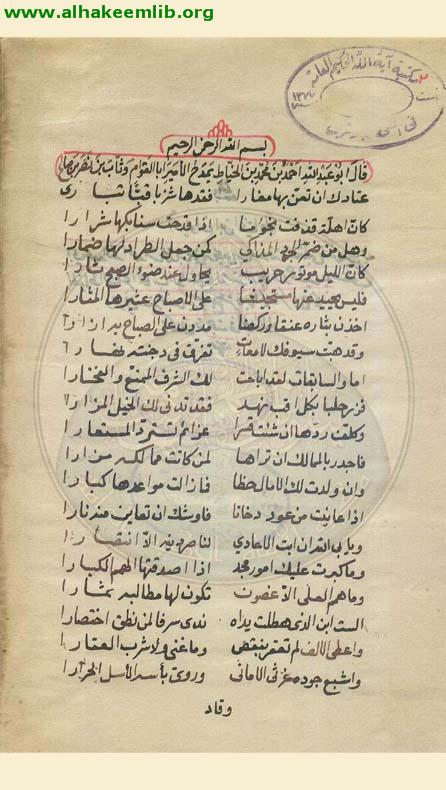 www.alhakeemlib.org
مكتبة آية الله الحكيم العامة
بسم الله الرحمن الرحيم
قال ابو عبد الله احمد بن محمد بن الخياط يمدح الامير ابا القوام وثاب بن نصر بن صالح
عتادك ان تشن بها مغارا فقدها شزبا قبا تبارى
كان اهلة قذفت نجوما اذا قدحت سنابكها شرارا
وهل من ضمر الجرد المذاكي كمن جعل الطراد لها ضمارا
كان الليل موتور حريب يحاول عند ضوء الصبح ثارا
فليس يحيد عنها على الاصباح عثيرها المثارا
اخذن بثاره عنقا وركضا مددن على الصباح به ازارا
وقد هبت سيوفك لامعات تفرق في دجنته نهارا
اما والسابقات لقد اباحت لك الشرف الممنع والفخارا
فزر حلبا بكل اقب نهد فقد تدني لك الخيل المزارا
وكلفت ردها ان شئت قسرا عزائم تسترد المستعارا
فاجدر بالممالك ان تراها لمن كانت ممالكه مرارا
وان ولدت لك الامال حظا فما زالت مواعدها كبارا
اذا عاينت من عود دخانا فاوشك ان تعاين منه نارا
ويابى الله ان ابت الاعادي لناصر دينه الا انتصارا
وما كبرت عليك امور مجد اذا اصدقتها الهمم الكبارا
وما همم العلى الا غصون تكون لها مطالبه ثمارا
الست ابن الذي هطلت يداه ندى سرفا لمن نطق اختصارا
واعطى الالف لم تعقر بنقص وما غنى ولا شرب العقارا
واشبع جوده غرثى الاماني وروى بأسه الاسل الحرارا
وقاد